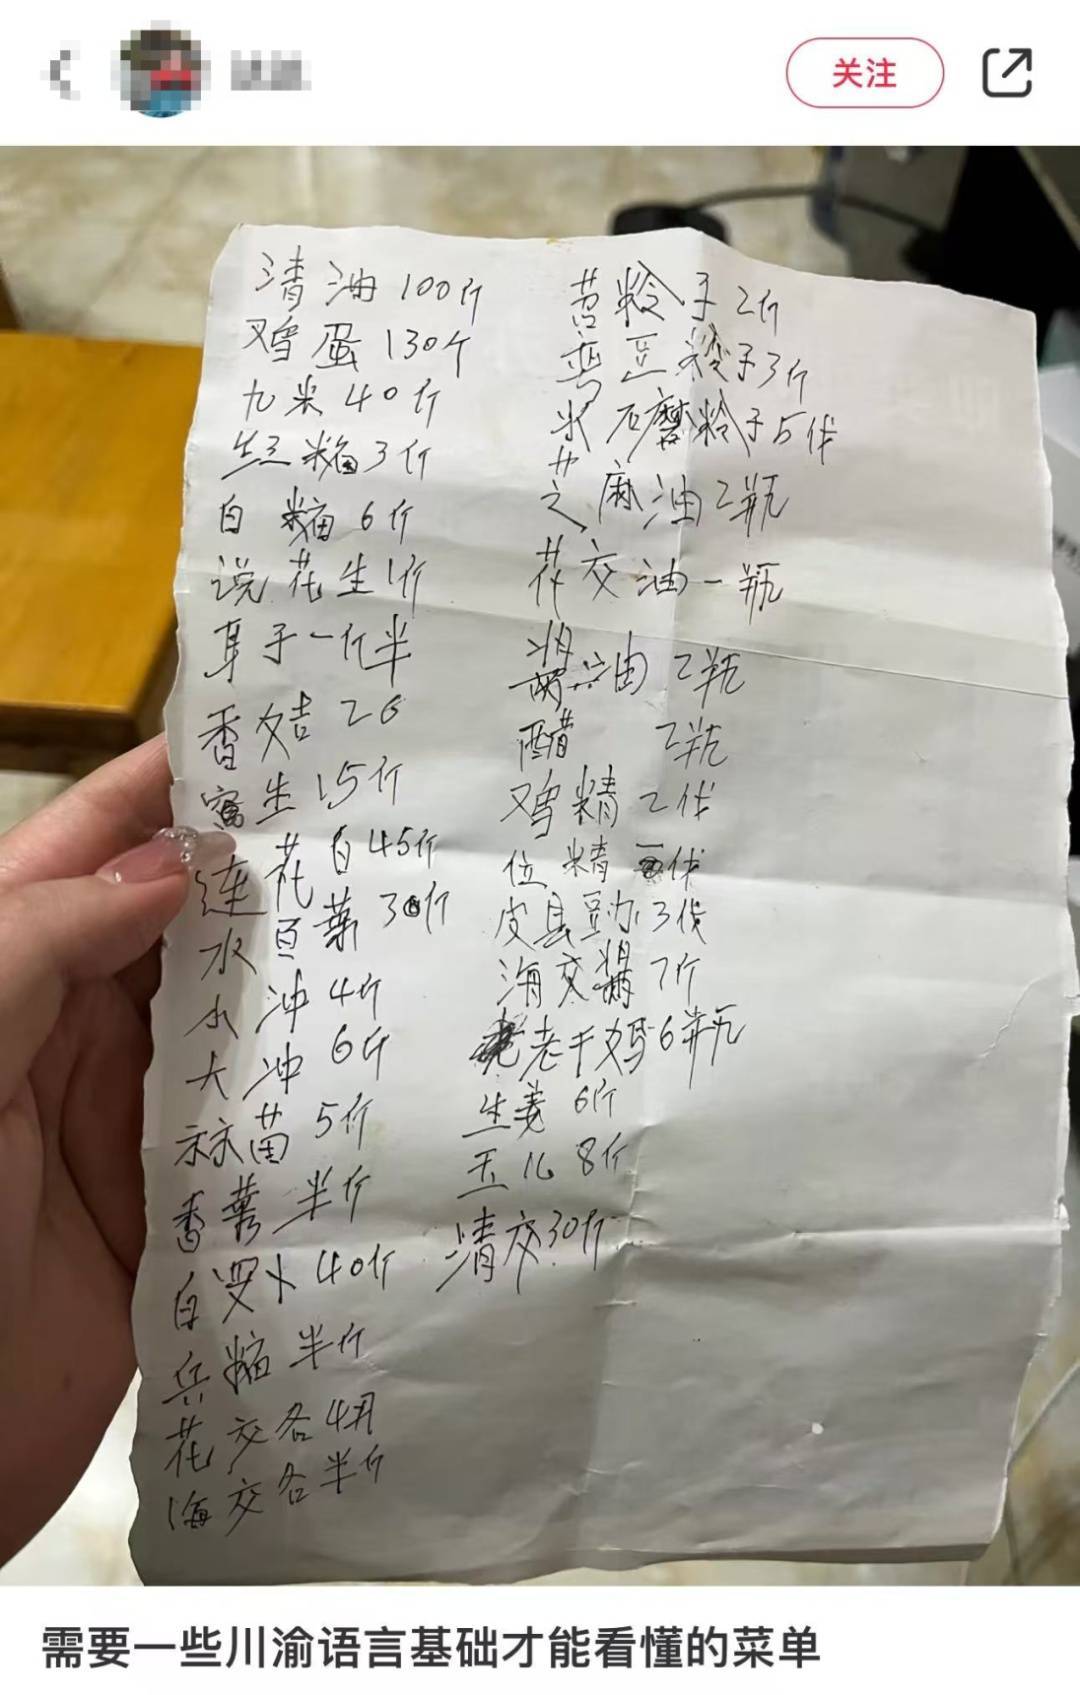 关注
清油100斤
鸡蛋130个
九米40斤
红糖3斤
白糖6斤
说花生1斤
耳于一斤半
香姑26
生15斤
连花白45斤
水百菜30斤
小冲4斤
大冲6斤
蒜苗5斤
香菜半斤
白罗卜40斤
兵糖半斤
花交各4两
海交各半斤
苕粉子2斤
豆粉子3斤
石磨粉子5代
芝麻油2瓶
花交油一瓶
酱油2瓶
醋 2瓶
鸡精2代
位精代
皮县豆办3代
海交酱7斤
老干妈6瓶
生姜6斤
玉儿8斤
清交30斤
需要一些川渝语言基础才能看懂的菜单